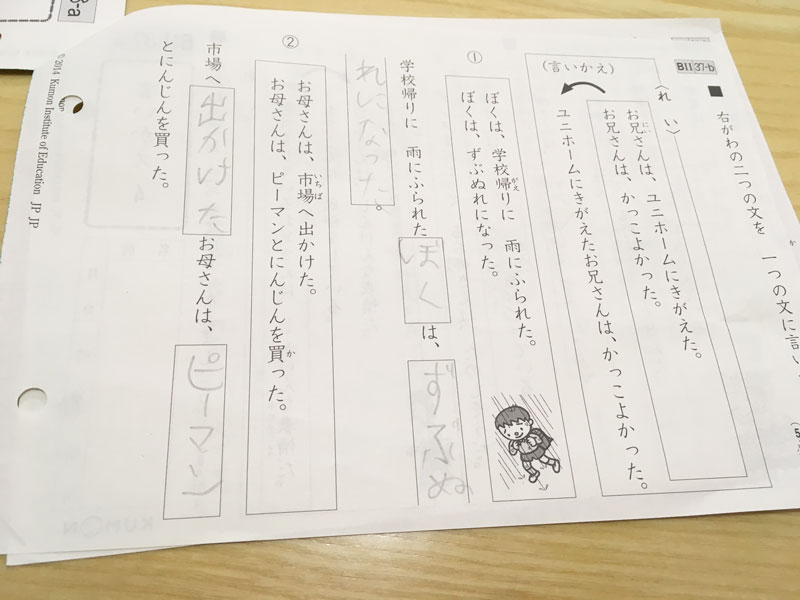 BⅡ 37-b
■ 右がわの二つの文を 一つの文に言い
〈れい〉
お兄さんは、ユニホームにきがえた。
お兄さんは、かっこよかった。
(言いかえ)
ユニホームにきがえたお兄さんは、かっこよかった。
①
ぼくは、学校帰りに 雨にふられた。
ぼくは、ずぶぬれになった。
学校帰りに 雨にふられたぼくは、ずぶぬ
れになった。
②
お母さんは、市場へ出かけた。
お母さんは、ピーマンとにんじんを買った。
市場へ出かけたお母さんは、ピーマン
とにんじんを買った。
© 2014 Kumon Institute of Education JP JP
3-a